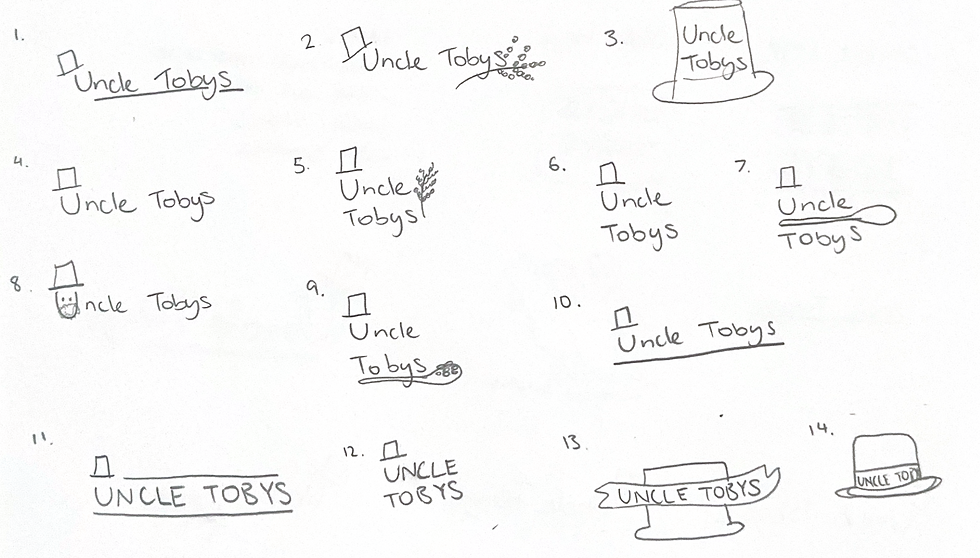 1.
Uncle Tobys
2.
Uncle Tobys
3.
Uncle
Tobys
4.
Uncle Tobys
5.
Uncle
Tobys
6.
Uncle
Tobys
7.
Uncle
Tobys
8.
Uncle Tobys
9.
Uncle
Tobys
10.
Uncle Tobys
11.
UNCLE TOBYS
12.
UNCLE
TOBYS
13
UNCLE TOBYS
14.
UNCLE TOB